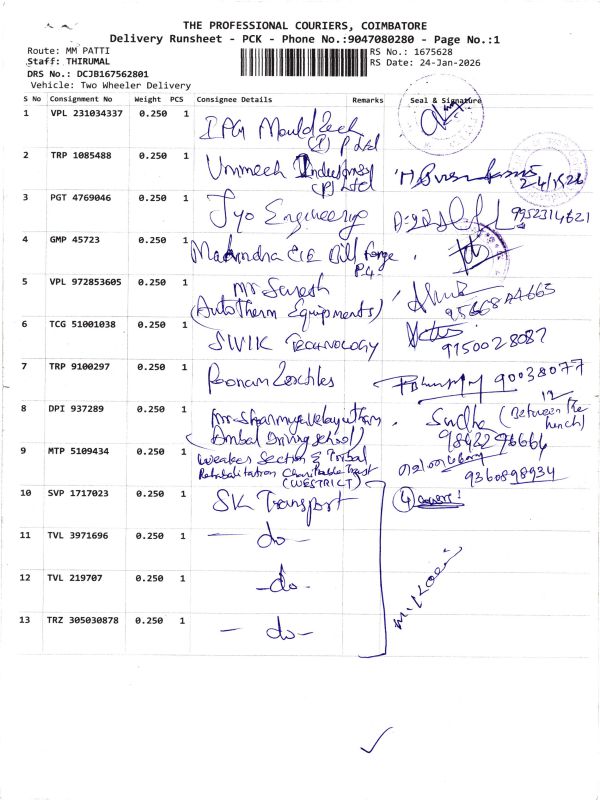 THE PROFESSIONAL COURIERS, COIMBATORE
Delivery Runsheet - PCK - Phone No.:9047080280 - Page No.:1
Route: MM PATTI
RS No.: 1675628
Staff: THIRUMAL
RS Date: 24-Jan-2026
DRS No.: DCJB167562801
Vehicle: Two Wheeler Delivery
S No Consignment No Weight PCS Consignee Details Remarks Seal & Signature
1 VPL 231034337 0.250 1 IPG Mouldtech
(I) P Ltd
2 TRP 1085488 0.250 1 Ummeed Industries
(P) Ltd
3 PGT 4769046 0.250 1 Jyo Engineering 9952314621
4 GMP 45723 0.250 1 Mahindra CIE
5 VPL 972853605 0.250 1 Mr Suresh
(Autotherm Equipments)
6 TCG 51001038 0.250 1 SWIK Technology 9150028087
7 TRP 9100297 0.250 1 Poonam Textiles 90038077
12
8 DPI 937289 0.250 1 Sudha (Between the
(Ambal Driving School)
9 MTP 5109434 0.250 1 Weaker Section & Tribal
Rehabilitation Charitable Trust 9360898934
(WESTRICT)
10 SVP 1717023 0.250 1 SK Transport 4 covers!
11 TVL 3971696 0.250 1 - do -
12 TVL 219707 0.250 1 - do -
13 TRZ 305030878 0.250 1 - do -